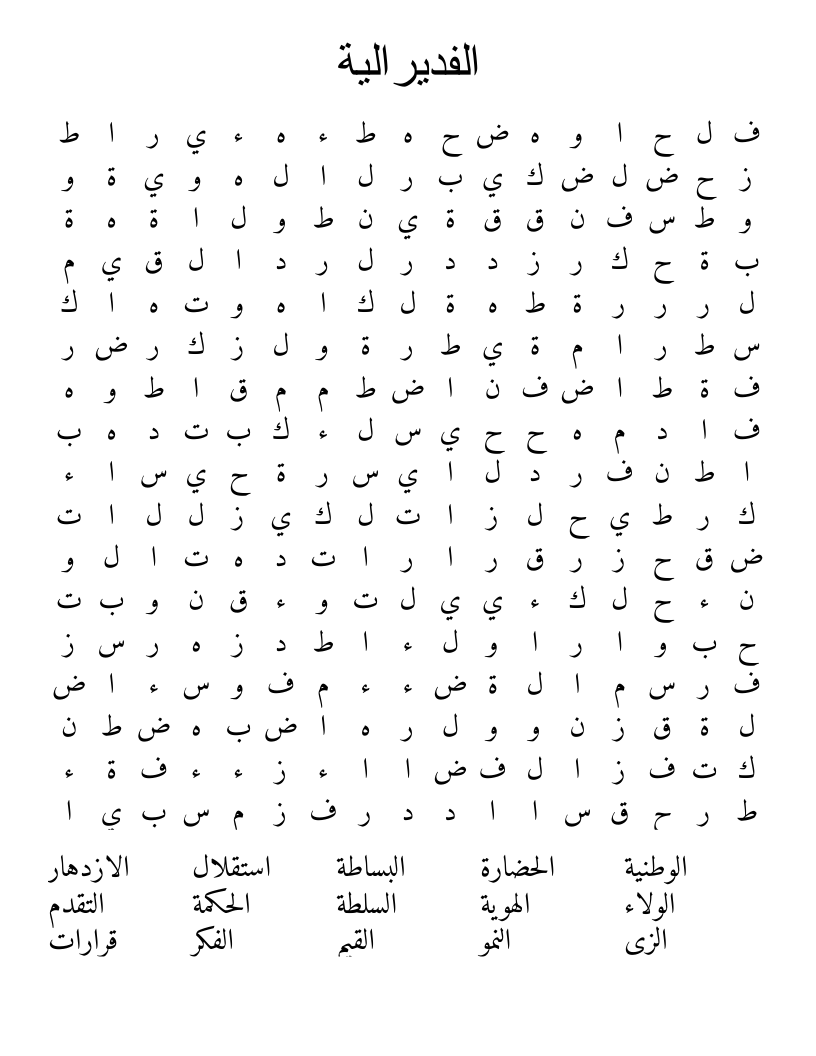 الفدير الية
ف ل ح ا و ه ض ح ه ط ء ه ء ي ر ا ط
ز ح ض ل ض ك ي ب ر ل ا ل ه و ي ة و
و ط س ف ن ق ق ة ي ن ط و ل ا ة ه ة
ب ة ح ك ر ز د د ر ل ر د ا ل ق ي م
ل ر ر ر ة ط ه ة ل ك ا ه و ت ه ا ك
س ط ر ا م ة ي ط ر ة و ل ز ك ر ض ر
ف ة ط ا ض ف ن ا ض ط م م ق ا ط و ه
ف ا د م ه ح ح ي س ل ء ك ب ت د ه ب
ا ط ن ف ر د ل ا ي س ر ة ح ي س ا ء
ك ر ط ي ح ل ز ا ت ل ك ي ز ل ل ا ت
ض ق ح ز ر ق ر ا ر ا ت د ه ت ا ل و
ن ء ح ل ك ء ي ي ل ت و ء ق ن و ب ت
ح ب و ا ر ا و ل ء ا ط د ز ه ر س ز
ف ر س م ا ل ة ض ء ء م ف و س ء ا ض
ل ة ق ز ن و و ل ر ه ا ض ب ه ض ط ن
ك ت ف ز ا ل ف ض ا ا ء ز ء ء ف ة ء
ط ر ح ق س ا ا د د ر ف ز م س ب ي ا
الوطنية الحضارة البساطة استقلال الازدهار
الولاء الهوية السلطة الحكمة التقدم
الزى النمو القيم الفكر قرارات